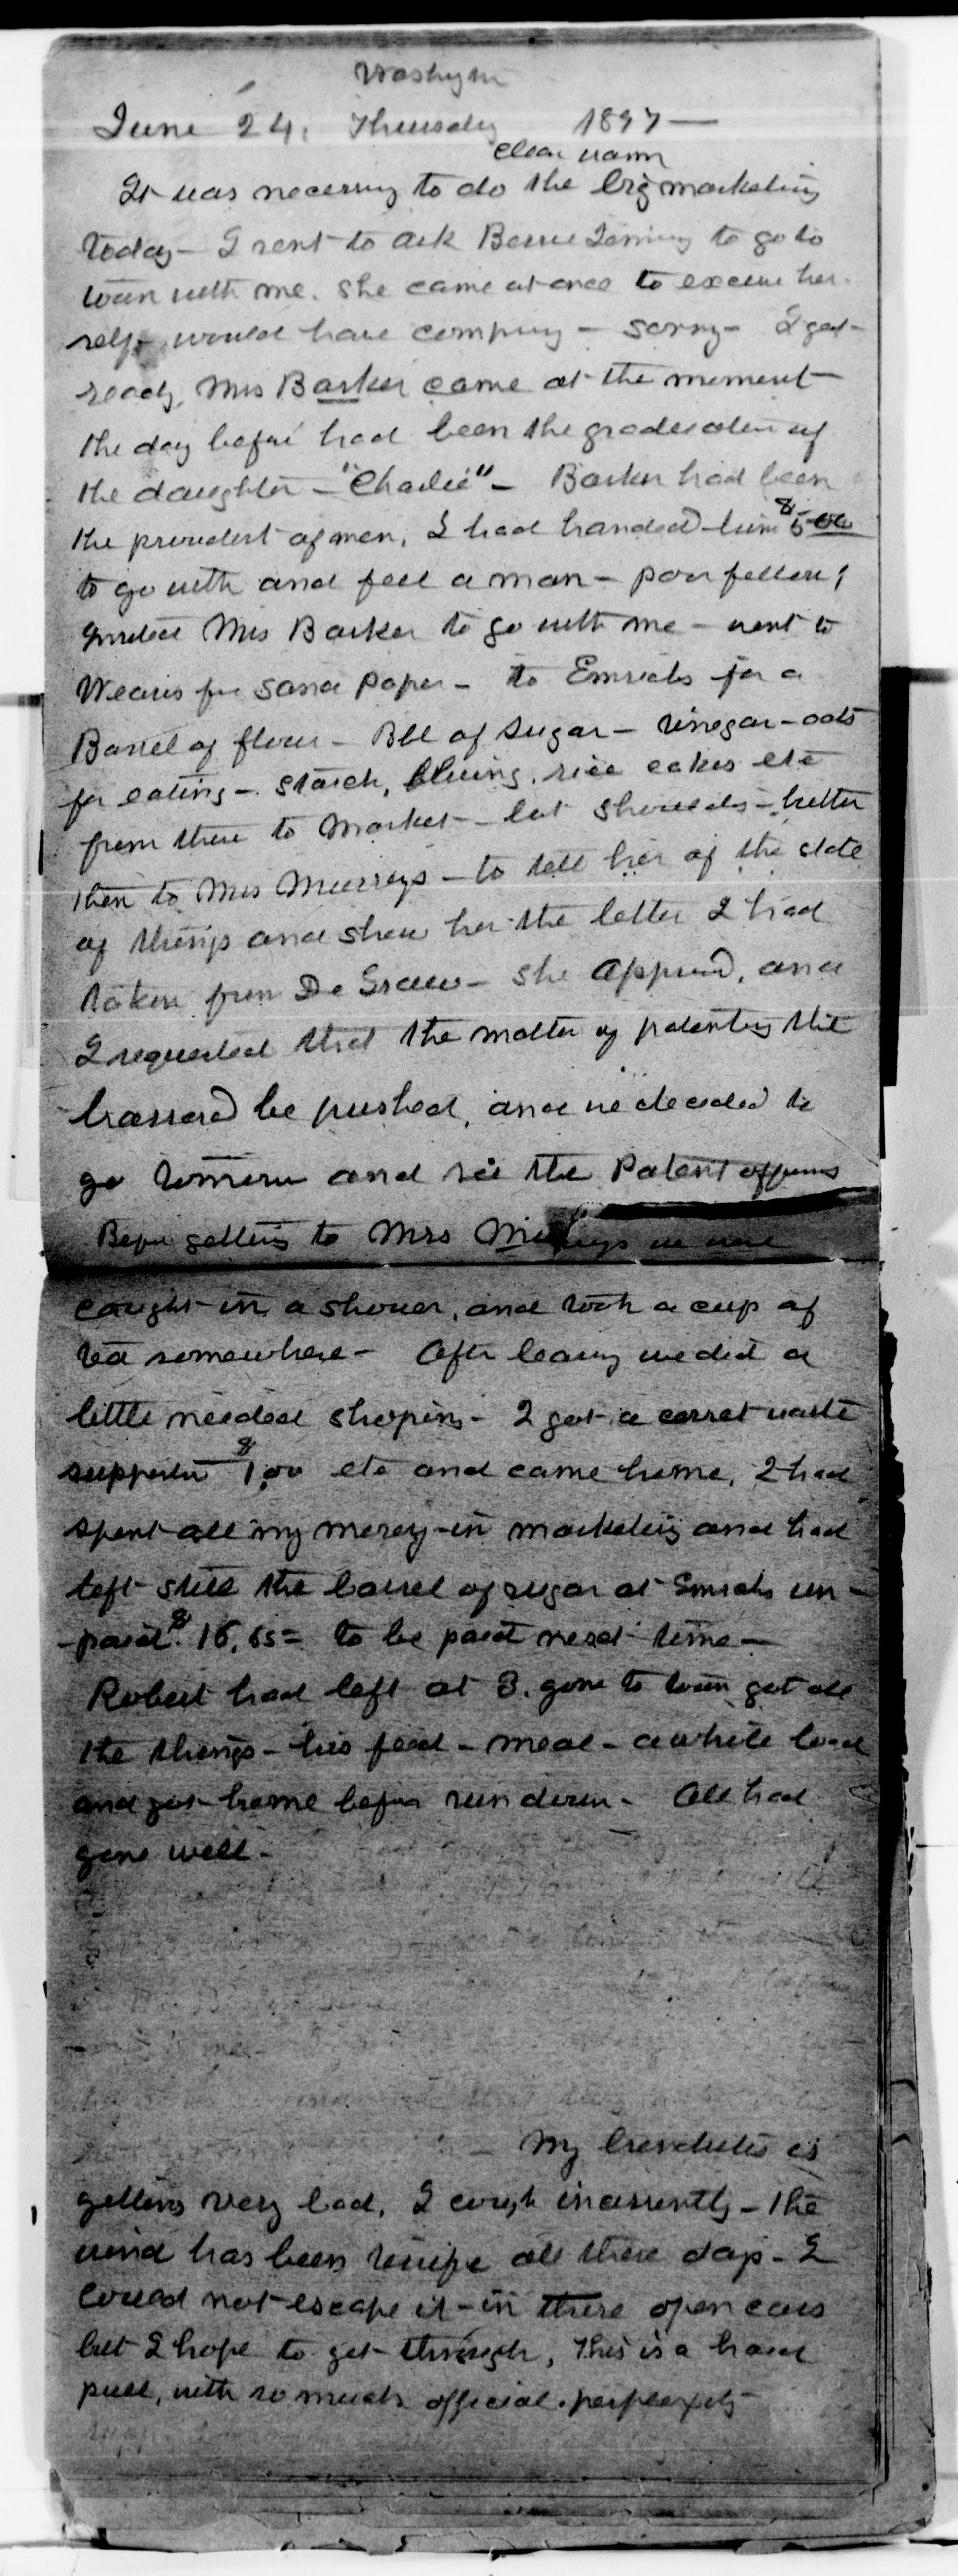 Washington
June 24, Thursday 1897 —
clear warm
It was necessary to do the big marketing
today - I sent to ask Bessie to go to
town with me. She came at once to excuse her-
self, would have company - sorry - I got
ready, Mrs Barker came at the moment
the day before had been the graduation of
the daughter - "Charlie" - Barker had been
the proudest of men, I had handed him $5.00
to go with and feel a man - poor fellow!
Invited Mrs Barker to go with me - went to
for sand paper - to Emrichs for a
Barrel of flour - Bbl of sugar - vinegar - oats
for eating - starch, bluing, rice cakes etc
from there to Market - but shoulds - butter
then to Mrs Murrays - to tell her of the state
of things and show her the letter I had
taken from De Graw - She approved, and
I requested that the matter of patenting the
be pushed, and we decided to
go tomorrow and see the Patent
Before getting to Mrs Murrays we were
caught in a shower, and took a cup of
tea somewhere - After leaving we did a
little needed shoping - I got a corset waste
supporter $1.00 etc and came home, I had
spent all my money in marketing and had
left still the barrel of sugar at Emrichs un-
-paid. $16.65 = to be paid next time -
Robert had left at 3. gone to town got all
the things - his feed - meal - a whole load
and got home before sun down - All had
gone well -
- My bronchitis is
getting very bad, I cough incessantly - the
wind has been terrific all these days - I
could not escape it - in these open cars
but I hope to get through, This is a hard
pull, with so much official perplexity